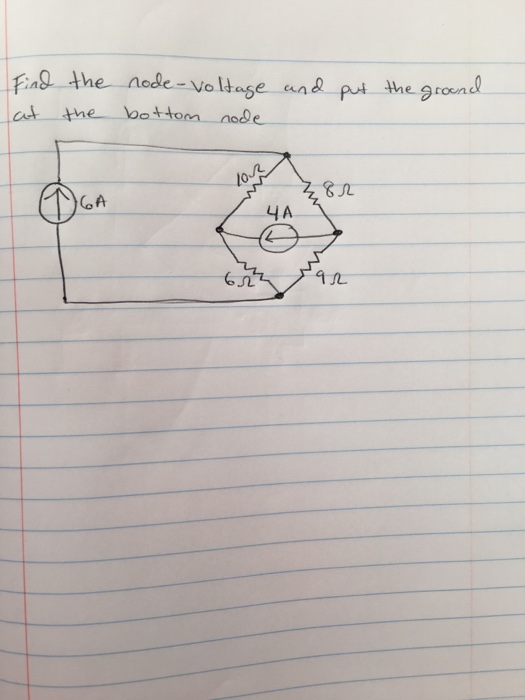 Find the node-voltage and put the ground
at the bottom node
10Ω
8Ω
6A
4A
6Ω
9Ω